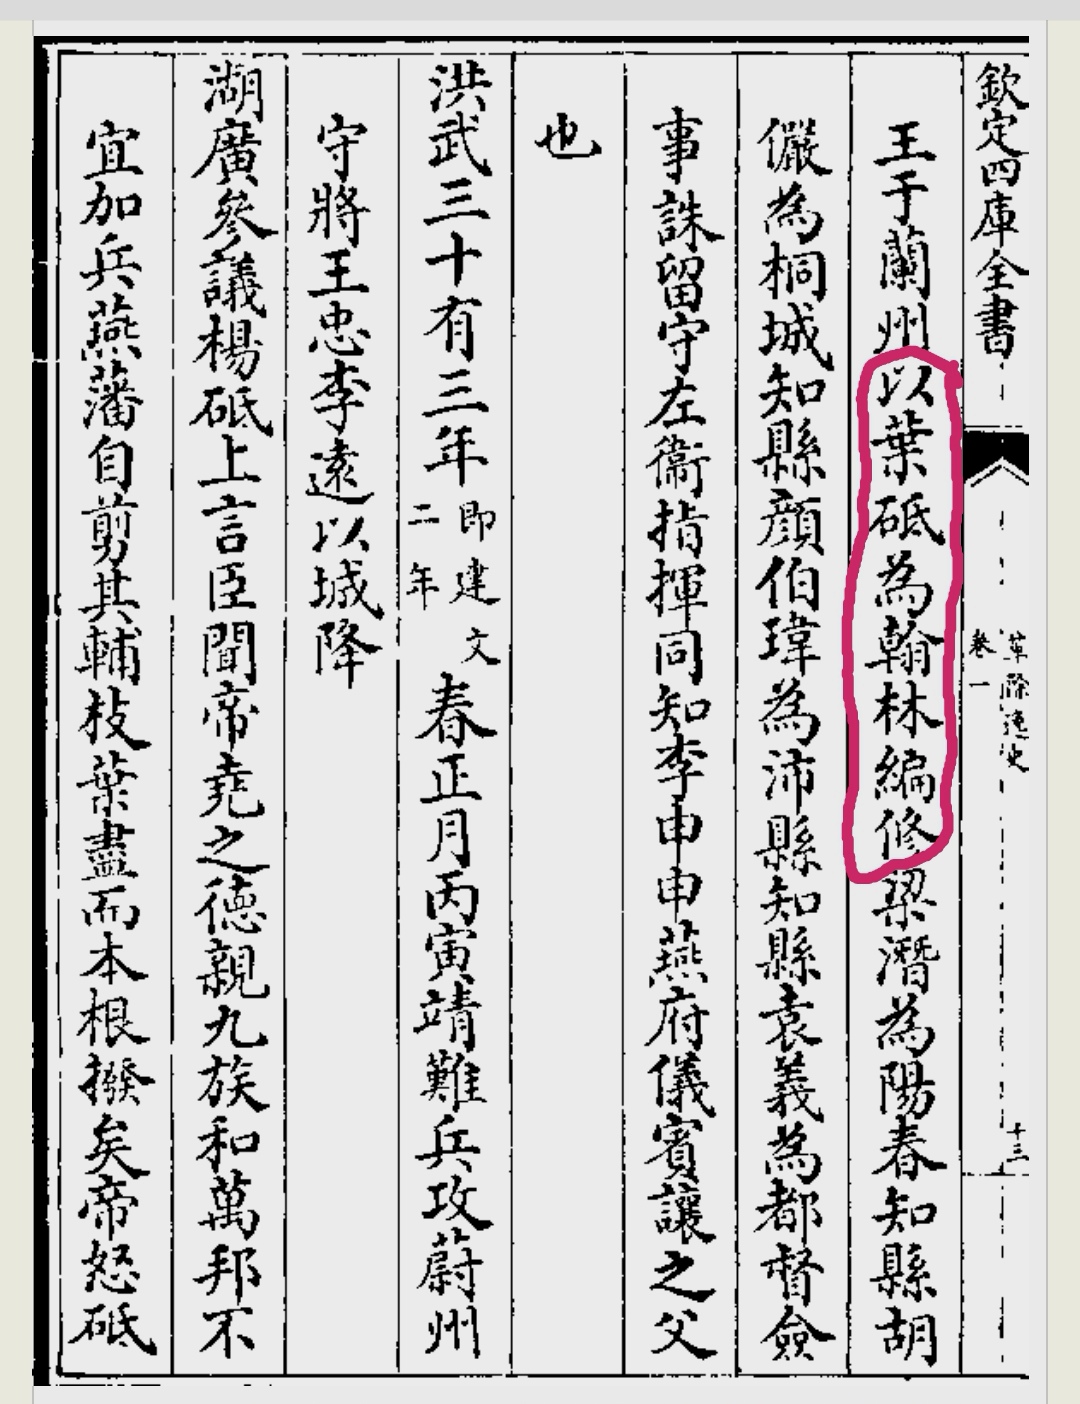 欽定四庫全書
卷一
十三
王于蘭州以葉砥為翰林編修梁潛為陽春知縣胡
儼為桐城知縣顔伯瑋為沛縣知縣袁義為都督僉
事誅留守左衞指揮同知李申申燕府儀賓讓之父
也
洪武三十有三年即建文二年春正月丙寅靖難兵攻蔚州
守將王忠李遠以城降
湖廣參議楊砥上言臣聞帝堯之德親九族和萬邦不
宜加兵燕藩自剪其輔枝葉盡而本根撥矣帝怒砥